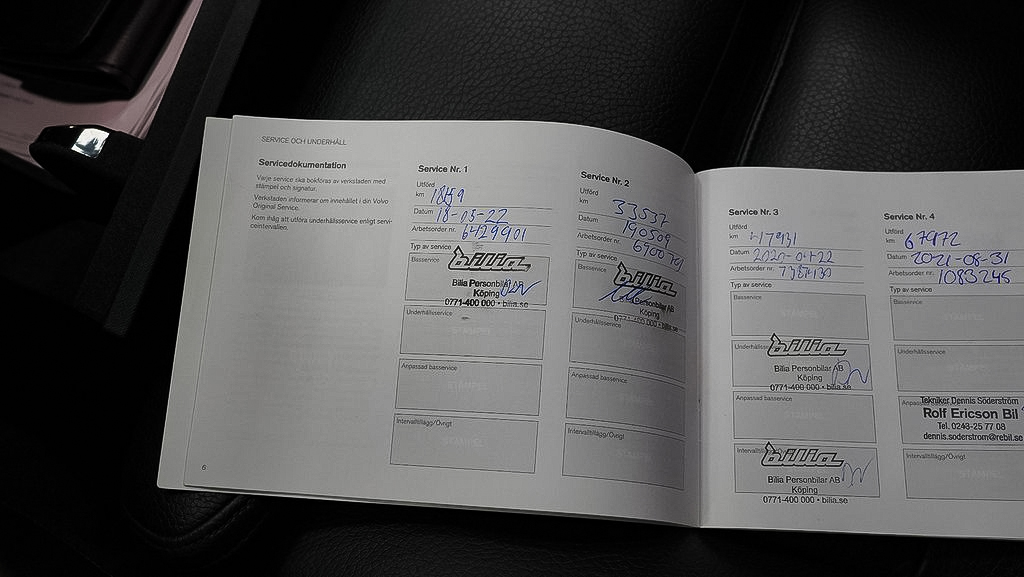 SERVICE OCH UNDERHÅLL
Servicedokumentation
Varje service ska bokföras av verkstaden med
stämpel och signatur.
Verkstaden informerar om innehållet i din Volvo
Original Service.
Kom ihåg att utföra underhållsservice enligt servi-
ceintervallen.
6
Service Nr. 1
Utförd
km
Datum 18-05-22
Arbetsorder nr. 6429901
Typ av service
Basservice
bilia
Bilia Personbilar
Köping
0771-400 000 • bilia.se
Underhållsservice
STÄMPEL
Anpassad basservice
STÄMPEL
Intervalltillägg/Övrigt
STÄMPEL
Service Nr. 2
Utförd
km 33537
Datum 190509
Arbetsorder nr.
Typ av service
Basservice
bilia
Bilia Personbilar
Köping
0771-400 000 • bilia.se
Underhållsservice
STÄMPEL
Anpassad basservice
STÄMPEL
Intervalltillägg/Övrigt
STÄMPEL
Service Nr. 3
Utförd
km 47931
Datum
Arbetsorder nr.
Typ av service
Basservice
STÄMPEL
Underhållsservice
bilia
Bilia Personbilar AB
Köping
0771-400 000 • bilia.se
Anpassad basservice
STÄMPEL
Intervalltillägg/Övrigt
bilia
Bilia Personbilar AB
Köping
0771-400 000 • bilia.se
Service Nr. 4
Utförd
km 67972
Datum 2021-08-31
Arbetsorder nr. 1083245
Typ av service
Basservice
STÄMPEL
Underhållsservice
STÄMPEL
Tekniker Dennis Söderström
Rolf Ericson Bil
Tel. 0248-25 77 08
dennis.soderstrom@rebil.se
Intervalltillägg/Övrigt
STÄMPEL